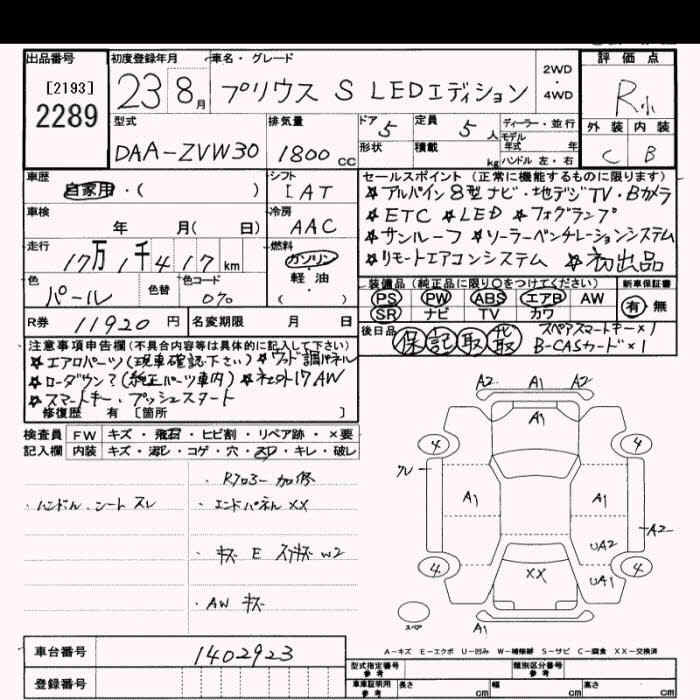 出品番号
[2193]
2289
初度登録年月
23 8月
車名・グレード
プリウス S LEDエディション
2WD
・
4WD
評価点
R小
外装 内装
C B
型式
DAA-ZVW30
排気量
1800cc
ドア
5
定員
5人
形状
積載
kg
ディーラー・並行
モデル
年式 年
ハンドル 左・右
車歴
自家用・( )
シフト
IAT
車検
年 月( 日)
冷房
AAC
走行
17万1千417km
燃料
ガソリン
軽・油
( )
色
パール
色替
色コード
070
R券 11920円
名変期限 月 日
セールスポイント(正常に機能するものに限ります)
★アルパイン8型ナビ・地デジTV・Bカメラ
★ETC ★LED ★フォグランプ
★サンルーフ ★ソーラーベンチレーションシステム
★リモートエアコンシステム ★初出品
装備品(純正品に限り○をつけてください)
PS PW ABS エアB AW
SR ナビ TV カワ
新車保証書
有・無
後日品
保 記 取
スペアスマートキー×1
B-CASカード×1
注意事項申告欄(不具合内容等は具体的に記入して下さい)
★エアロパーツ(現車確認下さい)★ウッド調パネル
★ローダウン?(純正パーツ車内)★社外17AW
★スマートキー・プッシュスタート
修復歴 有 [箇所 ]
検査員 FW キズ・飛石・ヒビ割・リペア跡・×要
記入欄 内装 キズ・コゲ・穴・スレ・キレ・破レ
・ハンドル、シート スレ
・Rフロアー 加修
・エンドパネル XX
・キズ E W2
・AW キズ
A2 A1 A2
A1
4 4
A1 A1
A2
UA2
4 4
XX UA1
スペア
A1
A-キズ E-エクボ U-凹み W-補修跡 S-サビ C-腐食 XX-交換済
車台番号
1402923
登録番号
型式指定番号
参考
類別区分番号
参考
車庫証明用
参考
長さ cm 幅 cm 高さ cm